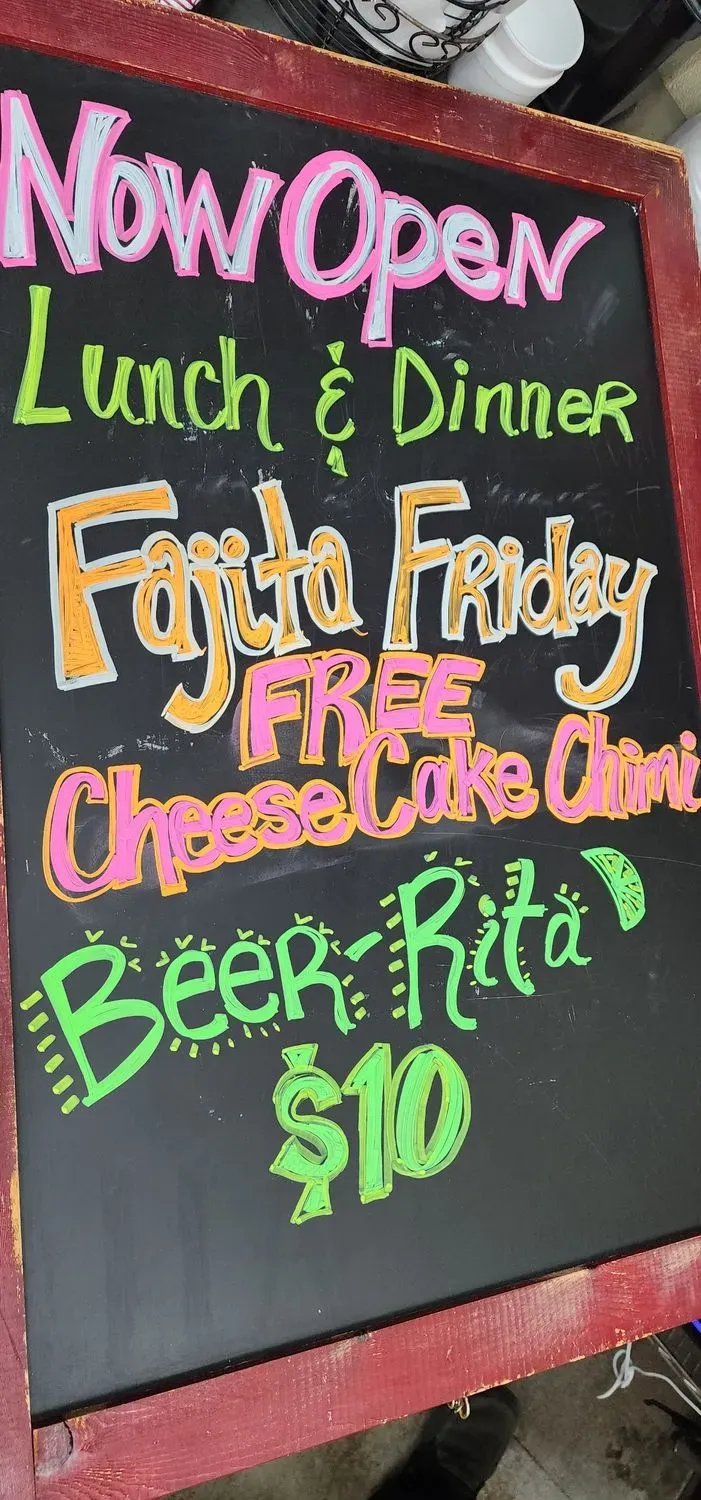 Now Open
Lunch & Dinner
Fajita Friday
FREE
Cheese Cake Chimi
Beer-Rita
$10